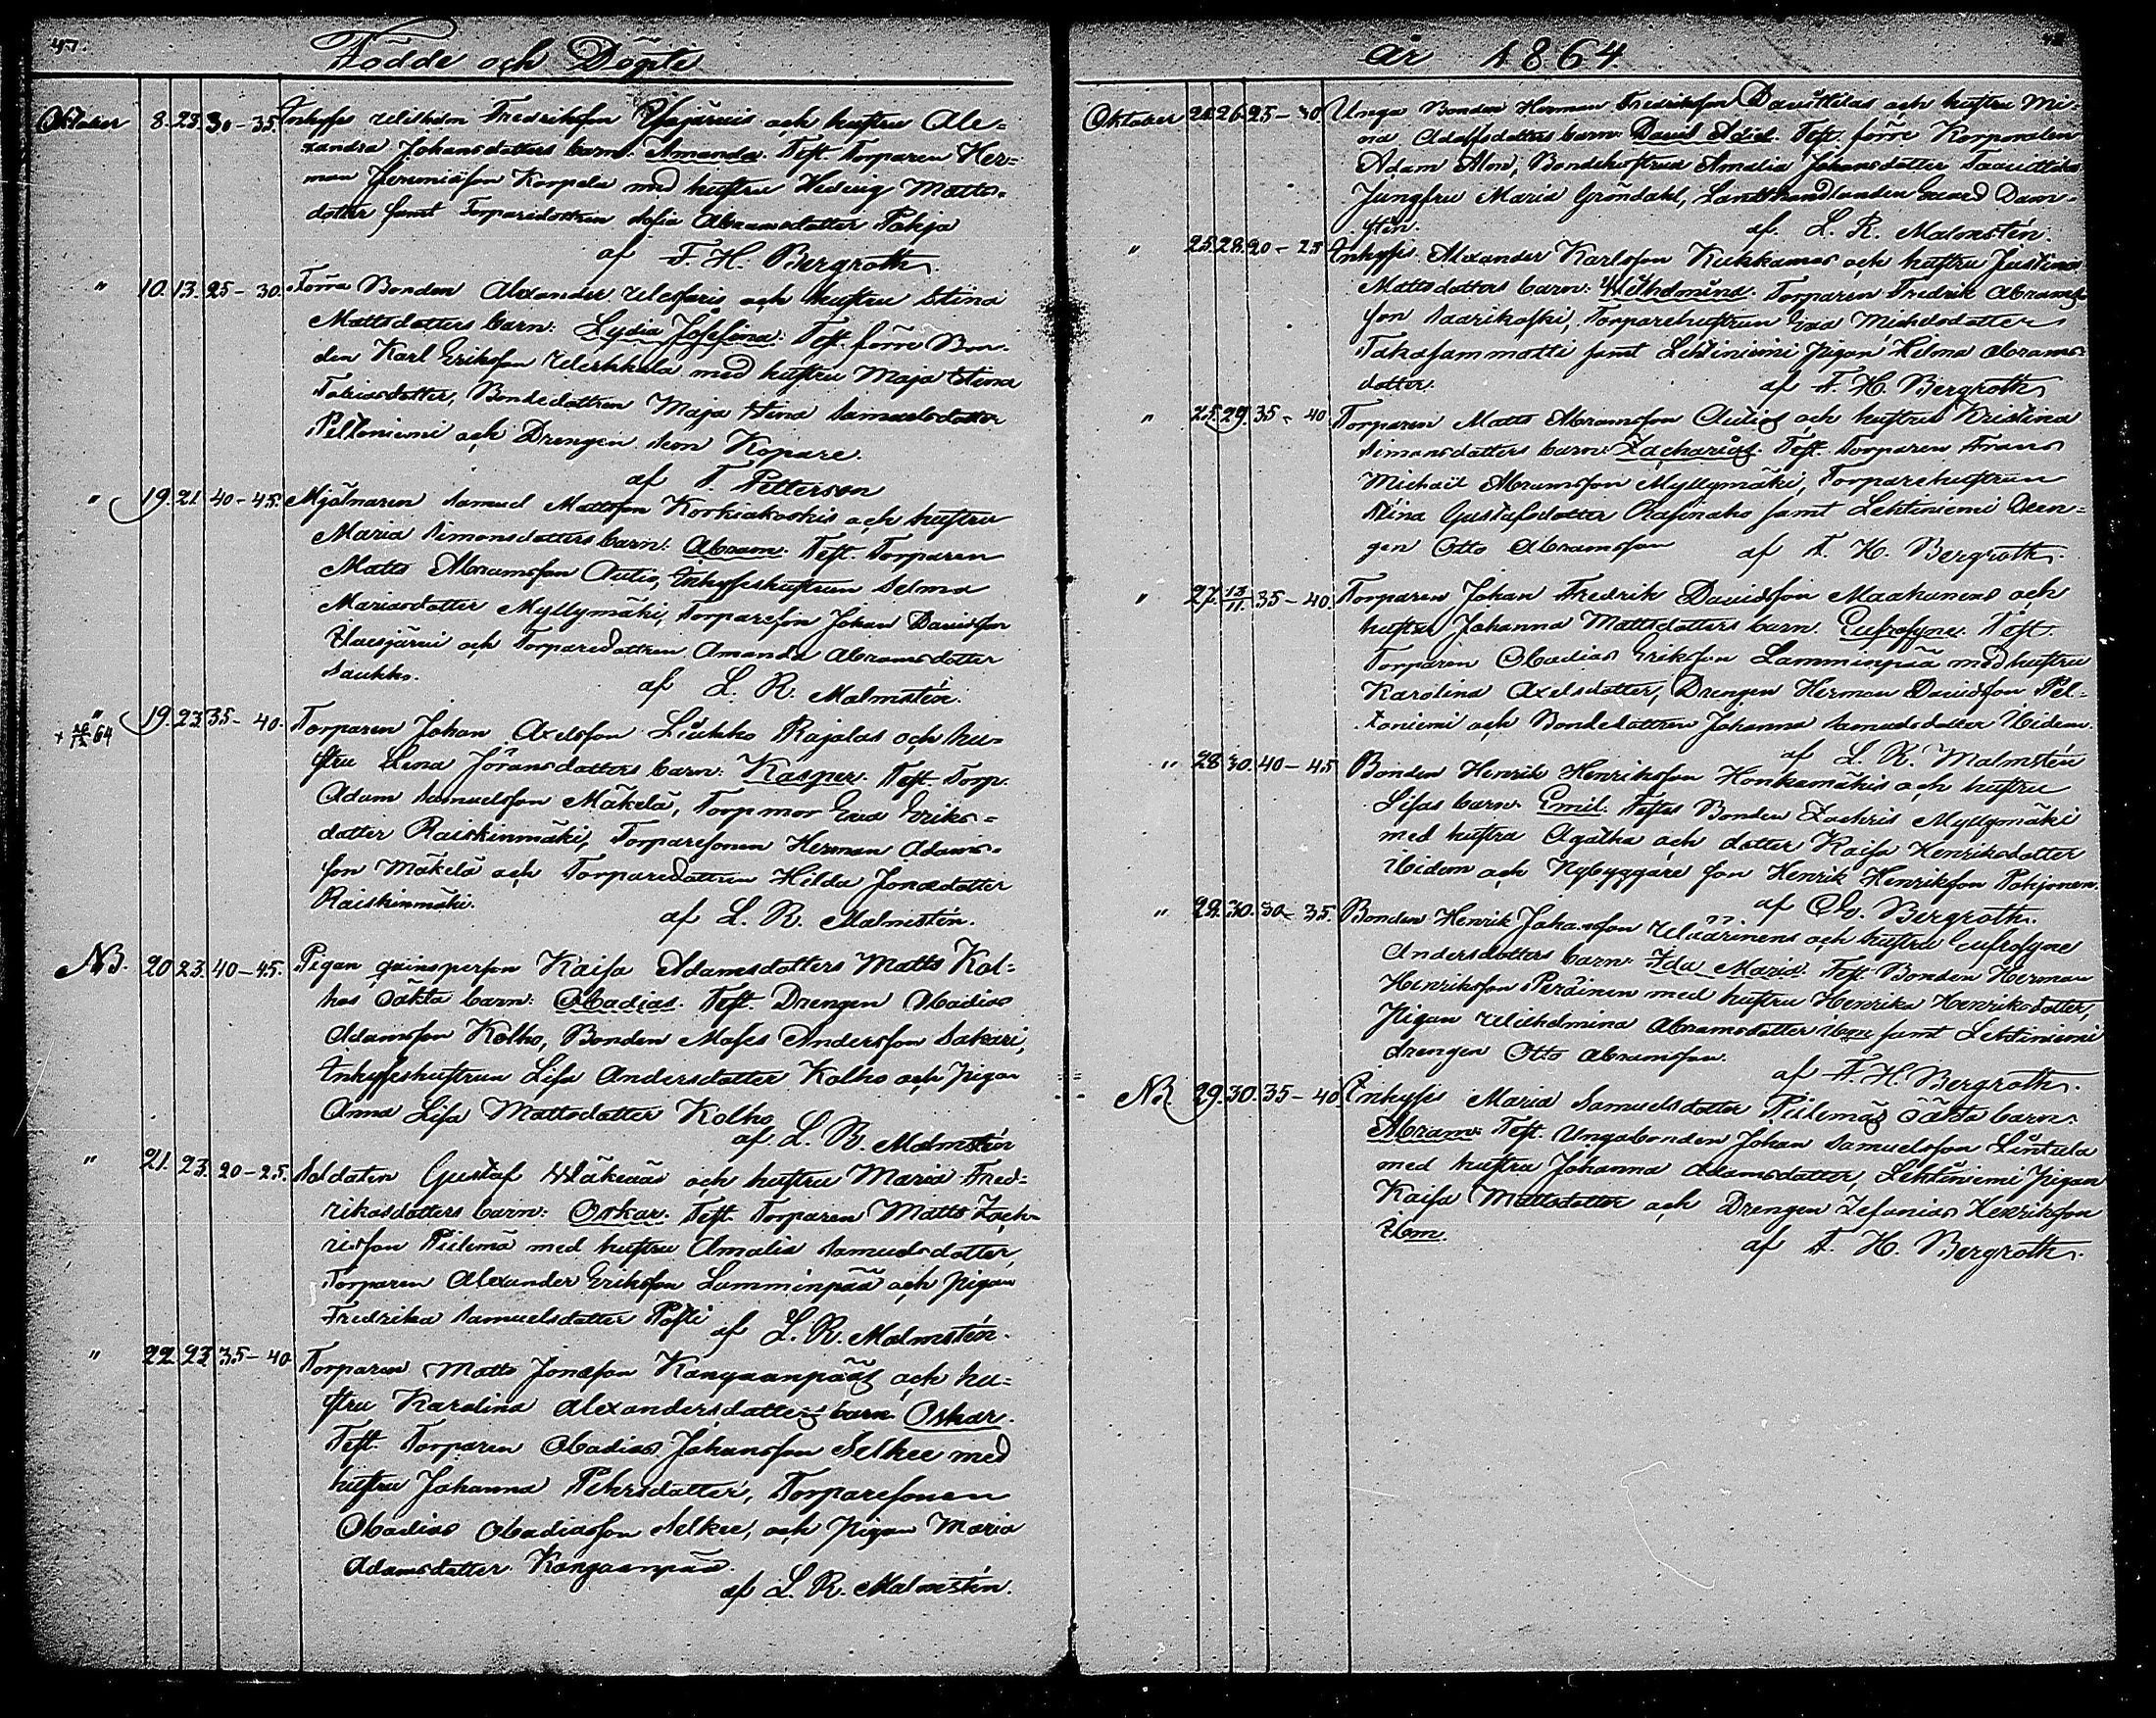 47.
Födde och Döpte
Oktober 8. 23. 30-35. Inhyses Wilhelm Fredriksson Ylisjärvis och hustru Ale=
xandra Johansdotters barn: Amanda. Test. Torparen Her=
man Jeremiasson Korpela med hustru Hedvig Matts=
dotter samt Torparedottren Sofia Abramsdotter Pohja
af F. H. Bergroth.
" 10. 13. 25-30. Förra Bonden Alexander och hustru Stina
Mattsdotters barn: Lydia Josefina. Test. förre Bon=
den Karl Eriksson med hustru Maja Stina
Tobiasdotter, Bondedottren Maja Stina Samuelsdotter
Peltoniemi och Drengen Kopare.
af T Petterson
" 19. 21. 40-45. Mjölnaren Samuel Mattsson Korkiakoskis och hustru
Maria Simonsdotters barn: Abram. Test. Torparen
Matts Abramsson Autio, Inhyseshustrun Selma
Mariasdotter Myllymäki, Torpareson Johan Davidsson
och Torparedottren Amanda Abramsdotter
Saukko.
af L. R. Malmstén.
" 19. 23. 35-40. Torparen Johan Axelsson Liukko Rajalas och hu=
stru Lena Jöransdotters barn: Kasper. Test. Torp.
Adam Samuelsson Mäkelä, Torpmor Eva Eriks=
dotter Raiskinmäki, Torparesonen Herman Adams=
son Mäkelä och Torparedottren Hilda Jonasdotter
Raiskinmäki.
af L. R. Malmstén.
NB. 20 23. 40-45. Pigan qvinsperson Kaisa Adamsdotters Matts Kol=
hos oäkta barn: Obadias. Test. Drengen Obadias
Adamsson Kolho, Bonden Moses Andersson Sakari,
Inhyseshustrun Lisa Andersdotter Kolho och pigan
Anna Lisa Mattsdotter Kolho
af L. R. Malmstén
" 21. 23. 20-25. Soldaten Gustaf Wäkeväs och hustru Maria Fred=
riksdotters barn: Oskar. Test. Torparen Matts Zach=
risson Pielemä med hustru Amalia Samuelsdotter,
Torparen Alexander Eriksson Lamminpää och pigan
Fredrika Samuelsdotter Posti
af L. R. Malmstén.
" 22. 23 35-40. Torparen Matts Jonasson Kangaanpääs och hu=
stru Karolina Alexandersdotters barn: Oskar.
Test. Torparen Obadias Johansson Selkee med
hustru Johanna Pehrsdotter, Torparesonen
Obadias Obadiasson Selkee, och pigan Maria
Adamsdotter Kangaanpää.
af L. R. Malmstén.
år 1864
Oktober 26. 25-30 Unga Bonden Herman Fredriksson Davittilas och hustru Mi=
na Adolfsdotters barn: David Adiel. Test. förre Korporalen
Adam Alm, Bondehustrun Amalia Johansdotter Taavittila
Jungfru Maria Gröndahl, Landthandlanden Dam=
stén.
af L. R. Malmstén.
" 25. 28. 20-25 Inhyses Alexander Karlsson Kukkamas och hustru Justina
Mattsdotters barn: Wilhelmina. Torparen Fredrik Abrams=
son Saarikoski, Torparehustrun Eva Michelsdotter
Takasammatti samt Lehtiniemi pigan Helma Abrams=
dotter.
af F. H. Bergroth
" 25. 29. 35-40 Torparen Matts Abramsson Autios och hustru Kristina
Simonsdotters barn: Zacharias. Test. Torparen Frans
Michael Abramsson Myllymäki, Torparehustrun
Stina Gustafsdotter Rasinaho samt Lehtiniemi Dren=
gen Otto Abramsson
af F. H. Bergroth.
" 27. 13/11. 35-40. Torparen Johan Fredrik Davidsson Maakunens och
hustru Johanna Mattsdotters barn: Eufrosyne. Test.
Torparen Obadias Eriksson Lamminpää med hustru
Karolina Axelsdotter, Drengen Herman Davidsson Pel=
toniemi och Bondedottren Johanna Samuelsdotter Ibidem.
af L. R. Malmstén
" 28 30. 40-45 Bonden Henrik Henriksson Honkamäkis och hustru
Lisas barn: Emil. Testes Bonden Zachris Myllymäki
med hustru Agatha och dotter Kaisa Henriksdotter
Ibidem och Nybyggare son Henrik Henriksson Pohjonen.
af Bergroth.
" 29. 30. 30-35. Bonden Henrik Johansson Wäärinens och hustru Eufrosyne
Andersdotters barn: Ida Maria. Test. Bonden Herman
Henriksson Peräinen med hustru Henrika Henriksdotter,
Pigan Wilhelmina Abramsdotter Ibm samt Lehtiniemi
drengen Otto Abramsson.
af F. H. Bergroth.
NB 29. 30. 35-40. Inhyses Maria Samuelsdotter Pielemäs oäkta barn:
Abram. Test. Ungabonden Johan Samuelsson Lintula
med hustru Johanna Adamsdotter, Lehtiniemi pigan
Kaisa Mattsdotter och Drengen Zefanias Henriksson
Ibm.
af F. H. Bergroth.